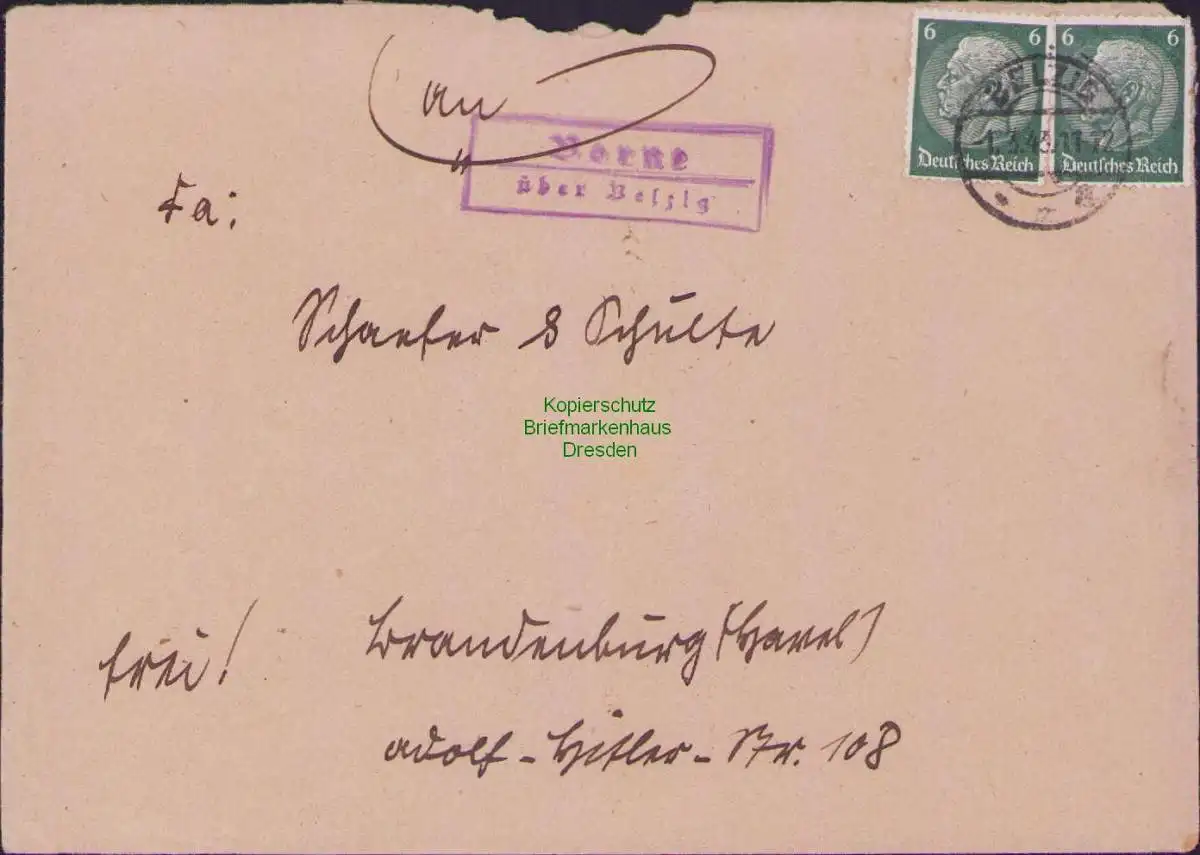 6 6 6 6
Deutsches Reich Deutsches Reich
BELZIG
1.3.43.11-12
an
Borne
über Belzig
Fa:
Schaefer & Schulte
Kopierschutz
Briefmarkenhaus
Dresden
frei! Brandenburg (Havel)
Adolf-Hitler-Str. 108